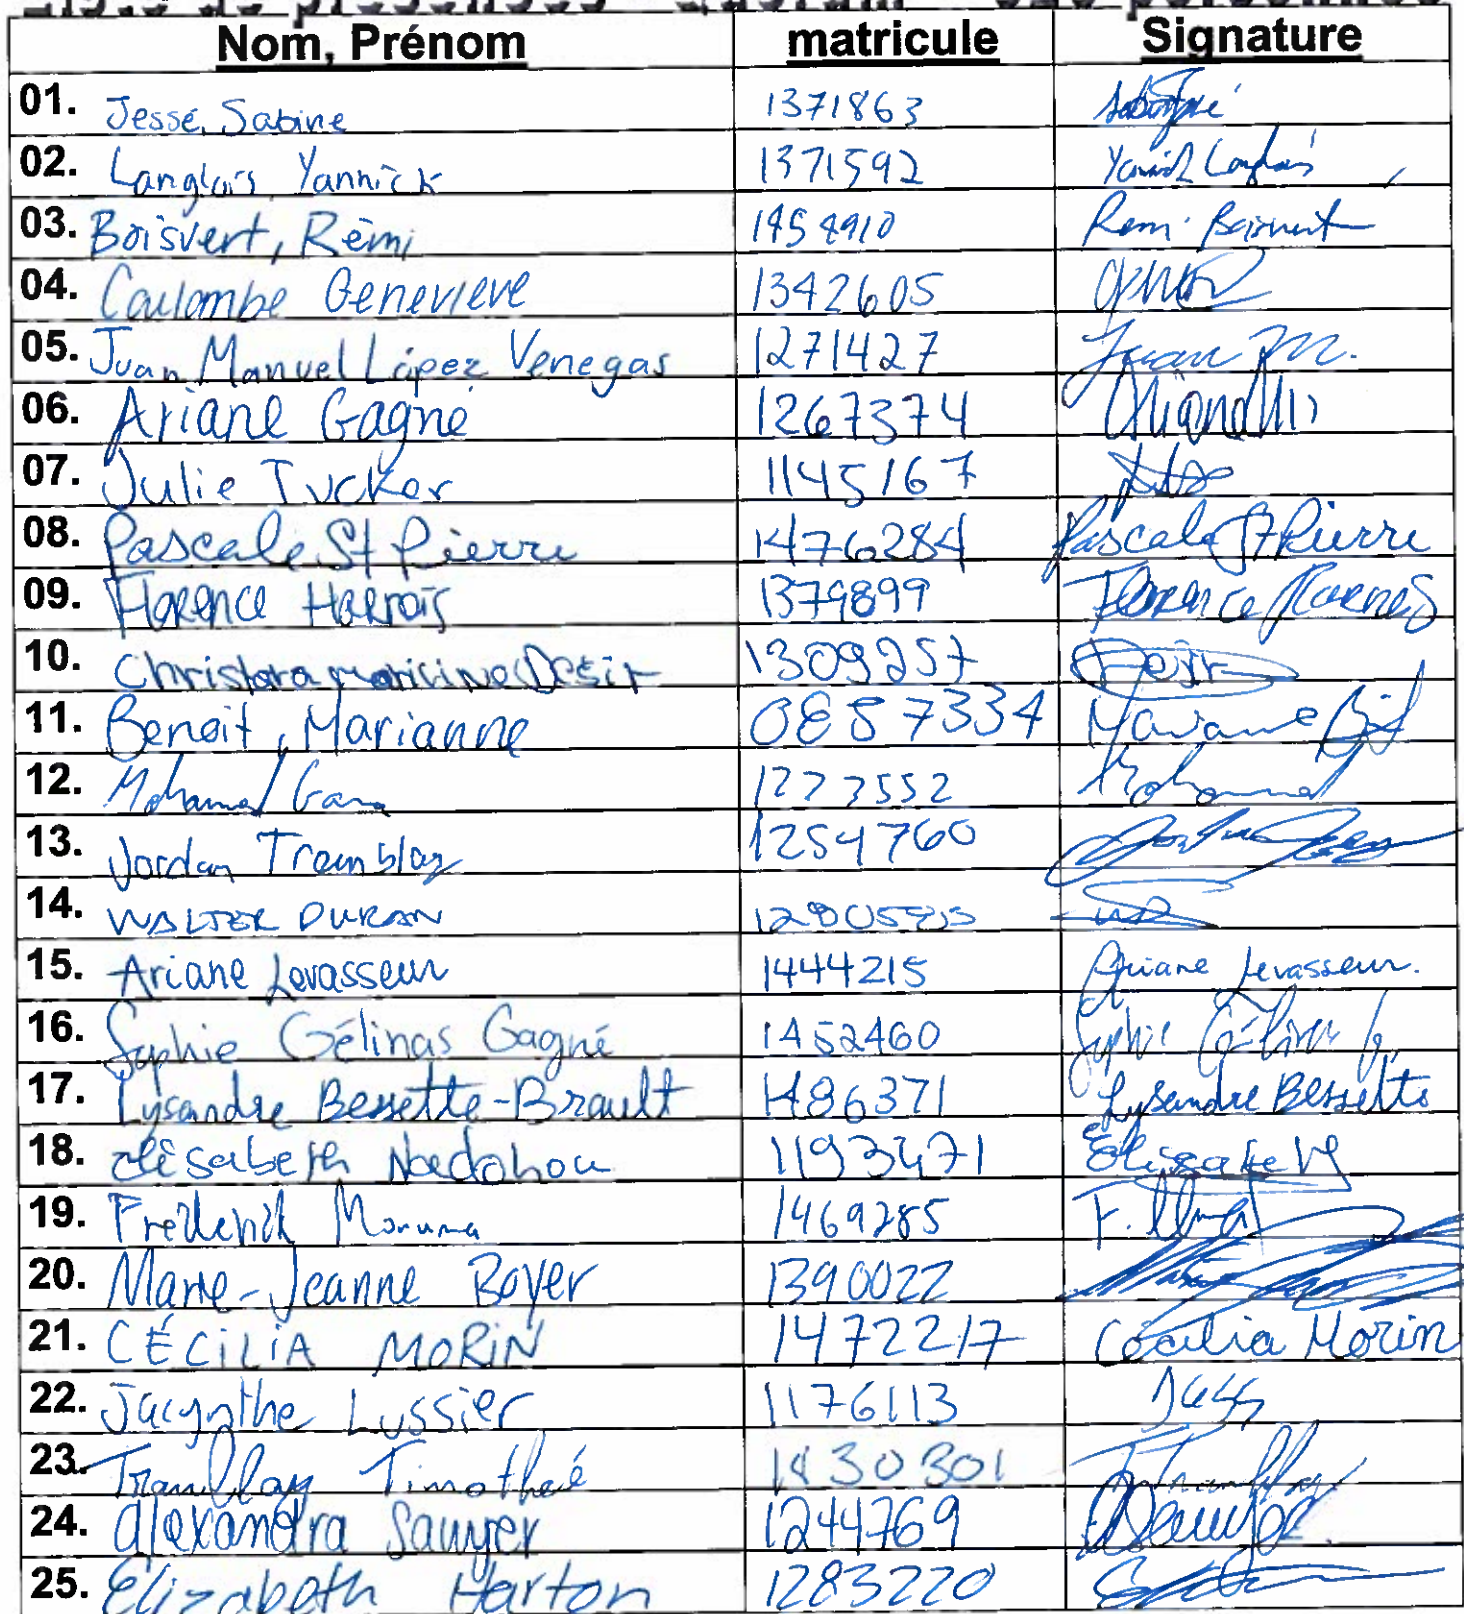 Liste de présences - Quorum -
Nom, Prénom matricule Signature
01. Jessé, Sabine 1371863
02. Langlois, Yannick 1371592 Yannick Langlois
03. Boisvert, Rémi 1454910 Remi Boisvert
04. Coulombe Genevieve 1342605
05. Juan Manuel López Venegas 1271427 Juan M.
06. Ariane Gagné 1267374
07. Julie Tucker 1145167
08. Pascale St Pierre 1476284 Pascale St Pierre
09. Florence Harnois 1379899 Florence Harnois
10. Desir 1309257 Desir
11. Benoit, Marianne 0887334 Marianne
12. Mohamed Gana 1273552 Mohamed
13. Jordan Tremblay 1254760
14. WALTER DURAN
15. Ariane Levasseur 1444215 Ariane Levasseur.
16. Sophie Gélinas Gagné 1452460 Sophie Gélinas G.
17. Lysandre Bessette-Brault 1486371 Lysandre Bessette
18. Elisabeth 1193471
19. Frederick 1469285 F.
20. Marie-Jeanne Boyer 1390022
21. CÉCiLiA MORiN 1472217 Cécilia Morin
22. Jacynthe Lussier 1176113
23. Tremblay Timotheé 1430301
24. Alexandra Sawyer 1244769
25. Élizabeth Harton 1283220